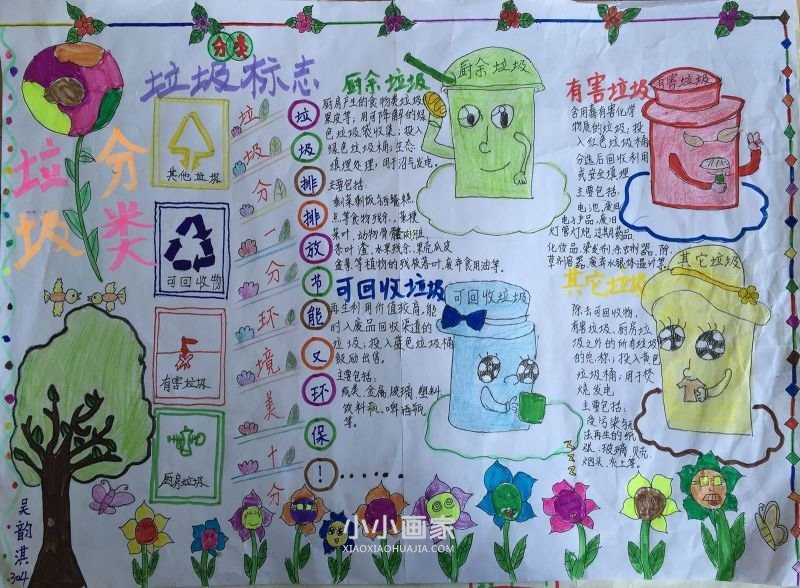 分类
垃圾标志
垃圾
分类
其他垃圾
可回收物
有害垃圾
厨房垃圾
垃
圾
分
一
分
环
境
美
十
分
垃
圾
排
排
放
节
能
又
环
保
!
厨余垃圾
厨房产生的食物类垃圾
果皮等;用可降解的绿
色垃圾袋收集;投入
绿色垃圾桶;生态
填埋处理,用于沼气发电。
主要包括:
剩菜剩饭与西餐糕
点等食物残余、菜梗
茶叶渣、水果残余、果壳瓜皮
盆景等植物的残枝落叶、废弃食用油等。
厨余垃圾
有害垃圾
含有毒有害化学
物质的垃圾;投
入红色垃圾桶
分选后回收利用
或安全填埋
主要包括:
电池、废旧
电子产品、废旧
灯管灯泡、过期药品、
有害垃圾
可回收垃圾
再生利用价值较高,能
时入废品回收渠道的
垃圾;投入蓝色垃圾桶
鼓励出售。
主要包括:
纸类、金属、玻璃、塑料
饮料瓶、啤酒瓶
等。
可回收垃圾
其它垃圾
除去可回收物、
有害垃圾、厨房垃
圾之外的所有垃圾
的总称;投入黄色
垃圾桶;用于焚
烧发电。
主要包括:
受污染与无
法再生的纸
张、玻璃、贝壳、
烟头、灰土等。
其它垃圾
吴韵淇
304
小小画家
XIAOXIAOHUAJIA.COM